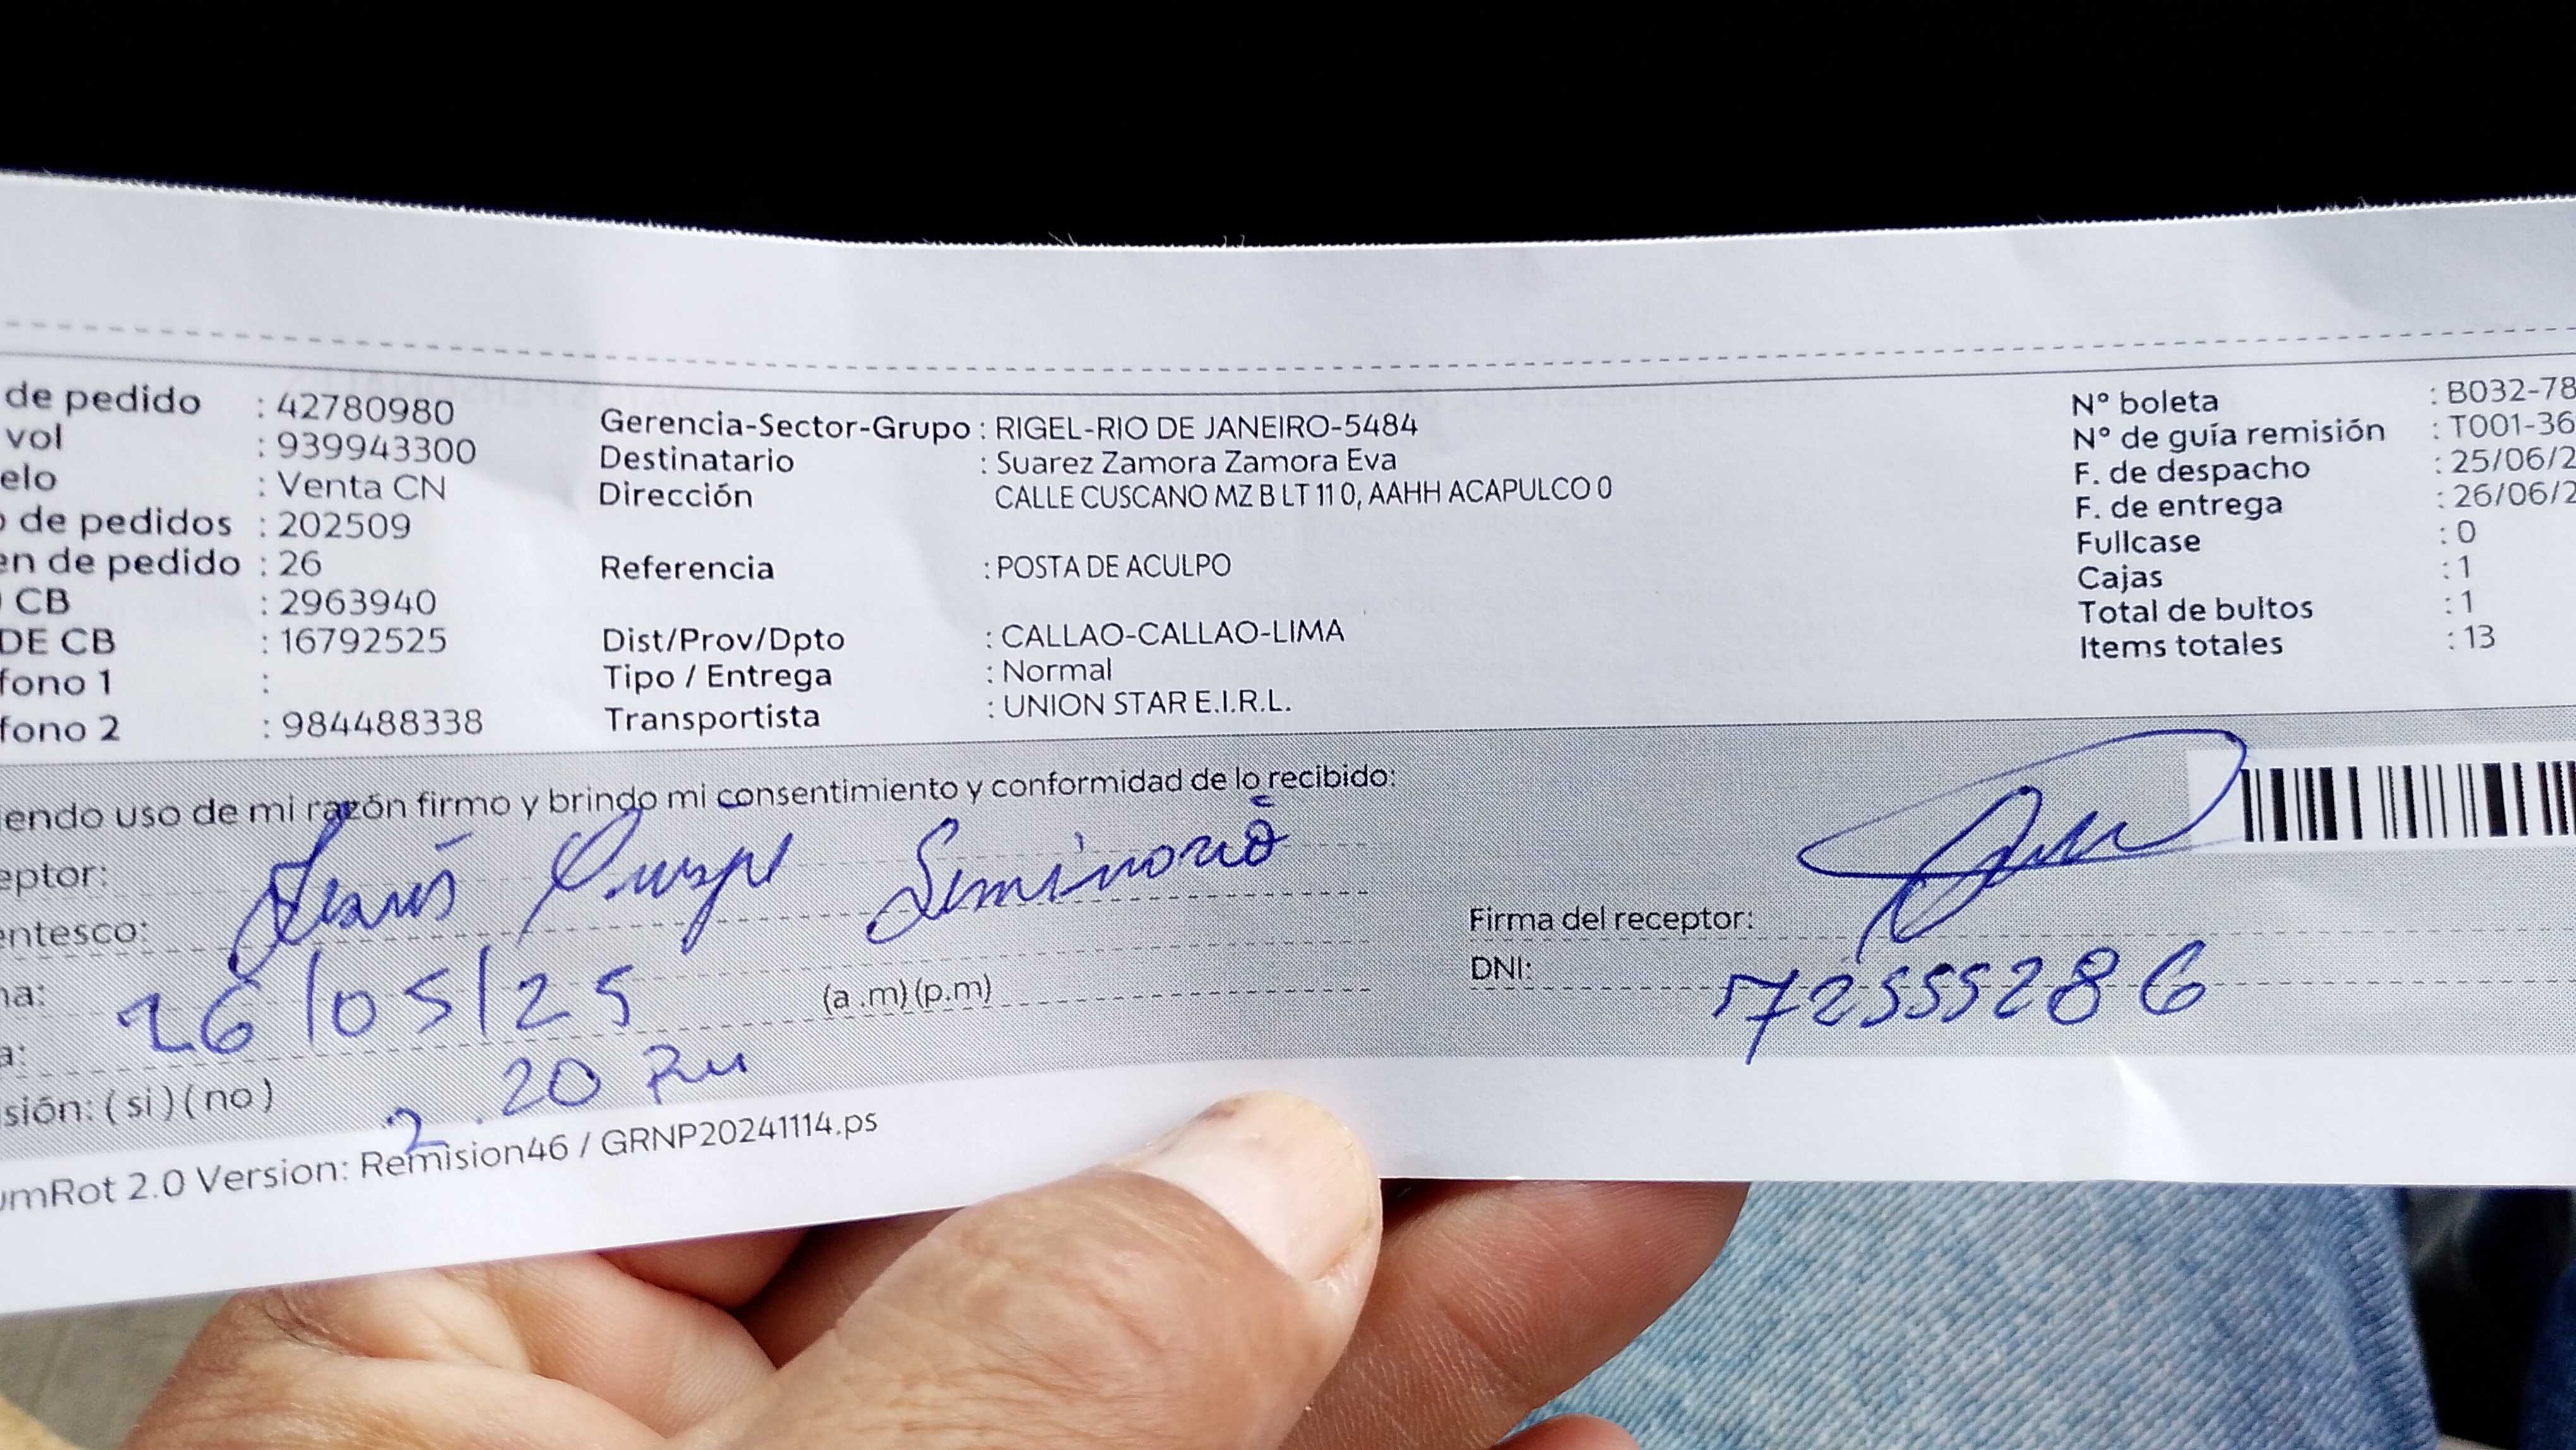 de pedido : 42780980
vol : 939943300
elo : Venta CN
o de pedidos : 202509
en de pedido : 26
CB : 2963940
DE CB : 16792525
fono 1 :
fono 2 : 984488338
Gerencia-Sector-Grupo : RIGEL-RIO DE JANEIRO-5484
Destinatario : Suarez Zamora Zamora Eva
Dirección CALLE CUSCANO MZ B LT 11 0, AAHH ACAPULCO 0
Referencia : POSTA DE ACULPO
Dist/Prov/Dpto : CALLAO-CALLAO-LIMA
Tipo / Entrega : Normal
Transportista : UNION STAR E.I.R.L.
N° boleta : B032-78
N° de guía remisión : T001-36
F. de despacho : 25/06/2
F. de entrega : 26/06/2
Fullcase : 0
Cajas : 1
Total de bultos : 1
Items totales : 13
iendo uso de mi razón firmo y brindo mi consentimiento y conformidad de lo recibido:
eptor: Jesús Quispe Seminario
entesco:
ha: 26/05/25 (a .m) (p.m)
a: 2.20 Pm
sión: ( si ) ( no )
Firma del receptor:
DNI: 72555286
umRot 2.0 Version: Remision46 / GRNP20241114.ps